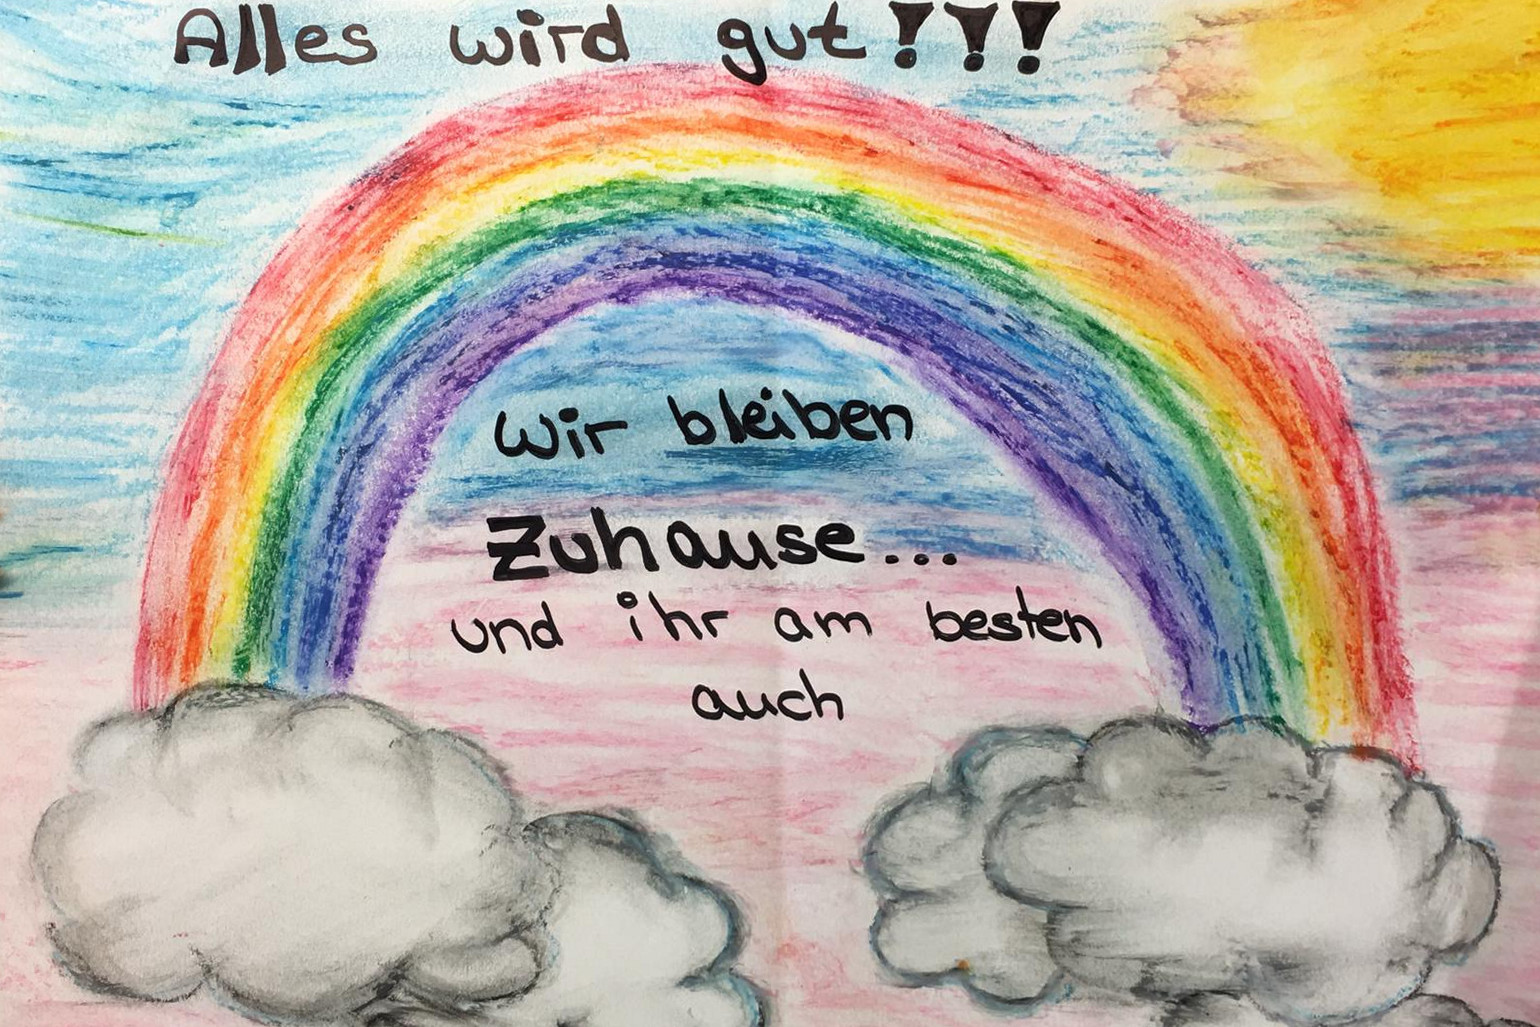 Alles wird gut!!!
Wir bleiben
Zuhause...
und ihr am besten
auch